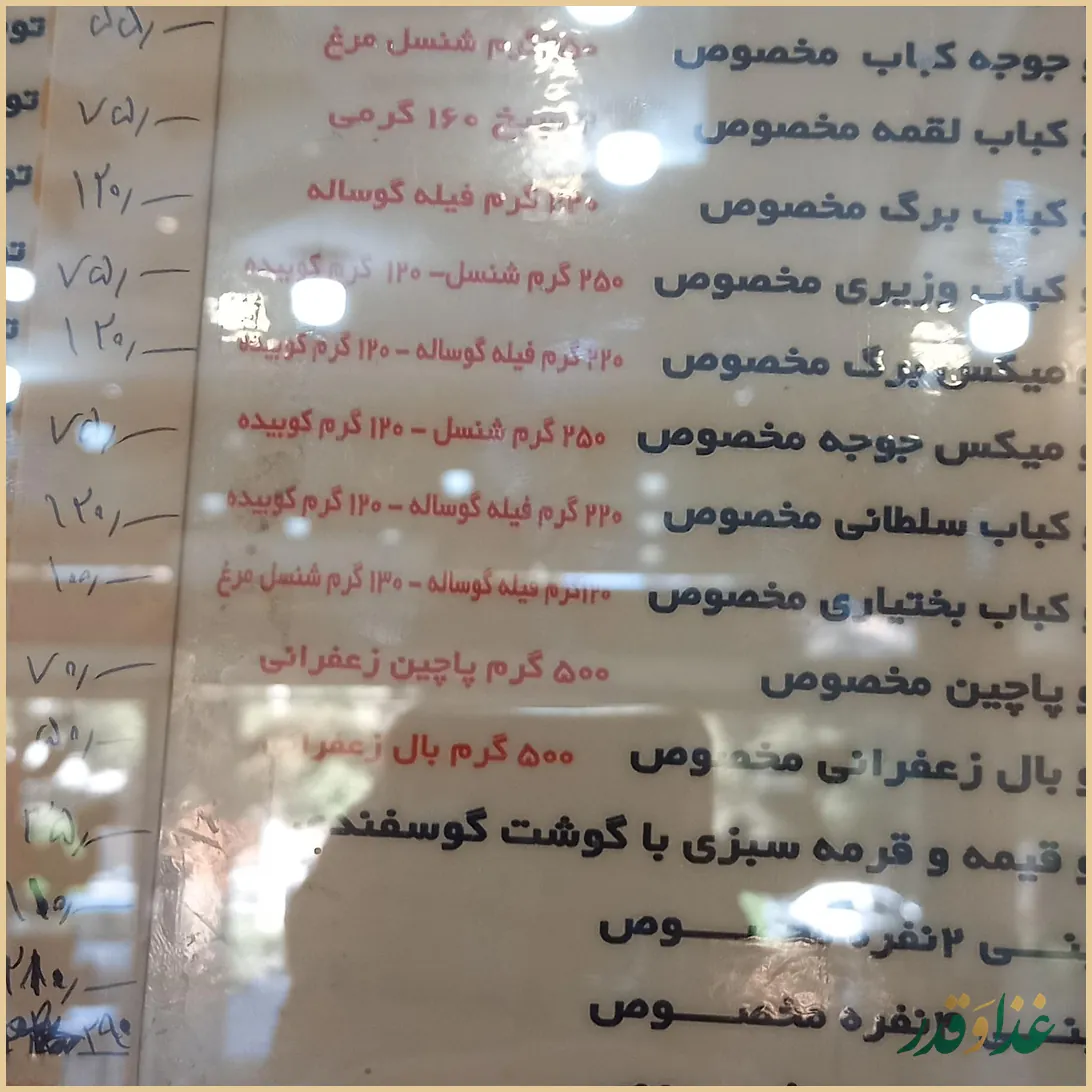 جوجه کباب مخصوص گرم شنسل مرغ
و کباب لقمه مخصوص سیخ ۱۶۰ گرمی ۷۵/— تو
و کباب برگ مخصوص ۲۲۰ گرم فیله گوساله ۱۲۰/—
و کباب وزیری مخصوص ۲۵۰ گرم شنسل – ۱۲۰ گرم کوبیده ۷۵/—
و میکس برگ مخصوص ۲۲۰ گرم فیله گوساله – ۱۲۰ گرم کوبیده ۱۲۰/—
و میکس جوجه مخصوص ۲۵۰ گرم شنسل – ۱۲۰ گرم کوبیده ۷۵/—
و کباب سلطانی مخصوص ۲۲۰ گرم فیله گوساله – ۱۲۰ گرم کوبیده ۱۲۰/—
و کباب بختیاری مخصوص ۱۲۰گرم فیله گوساله – ۱۳۰ گرم شنسل مرغ ۱۰۰/—
و پاچین مخصوص ۵۰۰ گرم پاچین زعفرانی ۷۰/—
و بال زعفرانی مخصوص ۵۰۰ گرم بال زعفرانی ۵۰/—
و قیمه و قرمه سبزی با گوشت گوسفندی
۲نفره مخصـــوص
نفره مخصـــوص
غذا و قدر